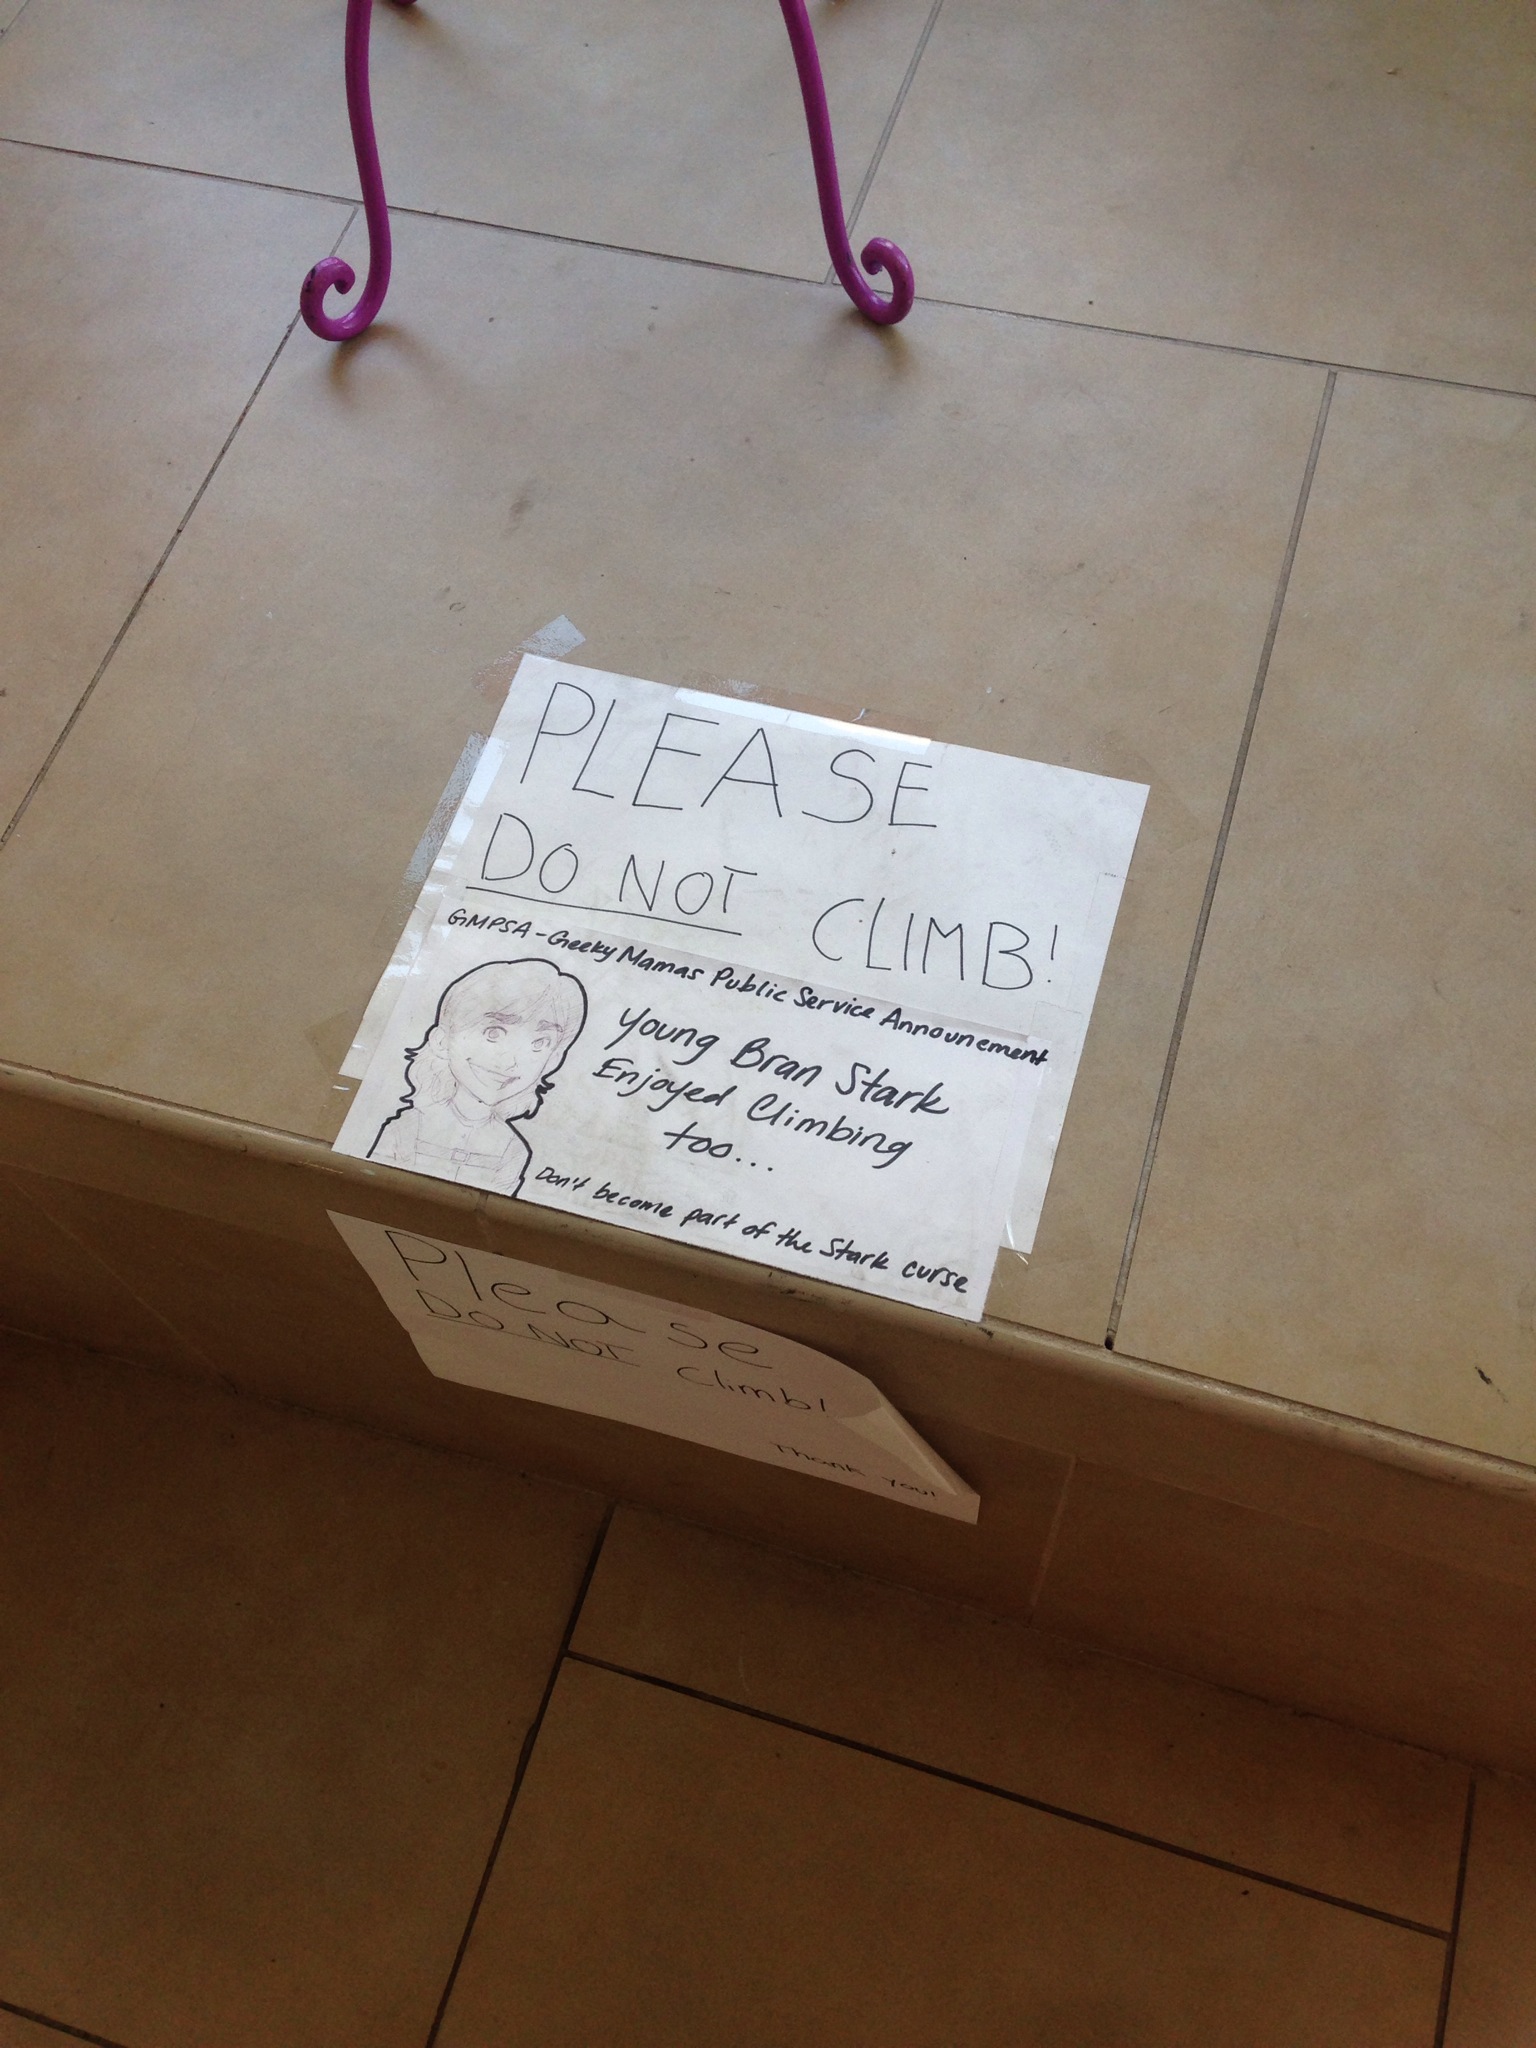 PLEASE
DO NOT CLIMB!
GMPSA-Geeky Mamas Public Service Announement
Young Bran Stark
Enjoyed Climbing
too...
Don't become part of the Stark curse
Please
DO NOT Climb!
Thank you!